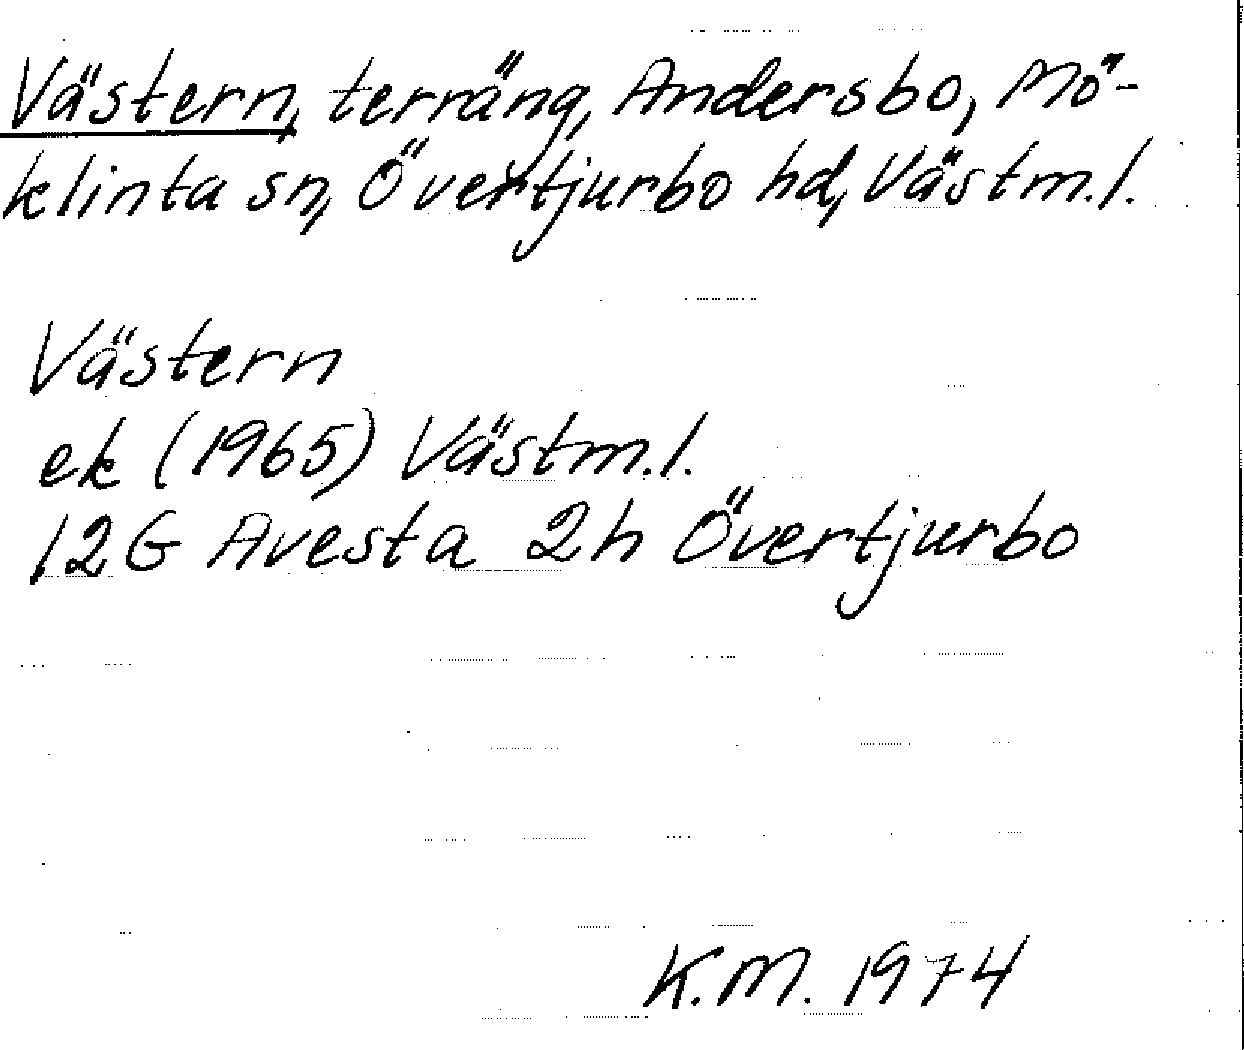 Västern, terräng, Andersbo, Mö-
klinta sn, Övertjurbo hd, Västm.l.
Västern
ek (1965) Västm.l.
12G Avesta 2h Övertjurbo
K.M. 1974